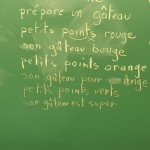 prépare un gâteau
petits points rouge
son gâteau bouge
petits points orange
son gâteau pour
petits points verts
son gâteau est super